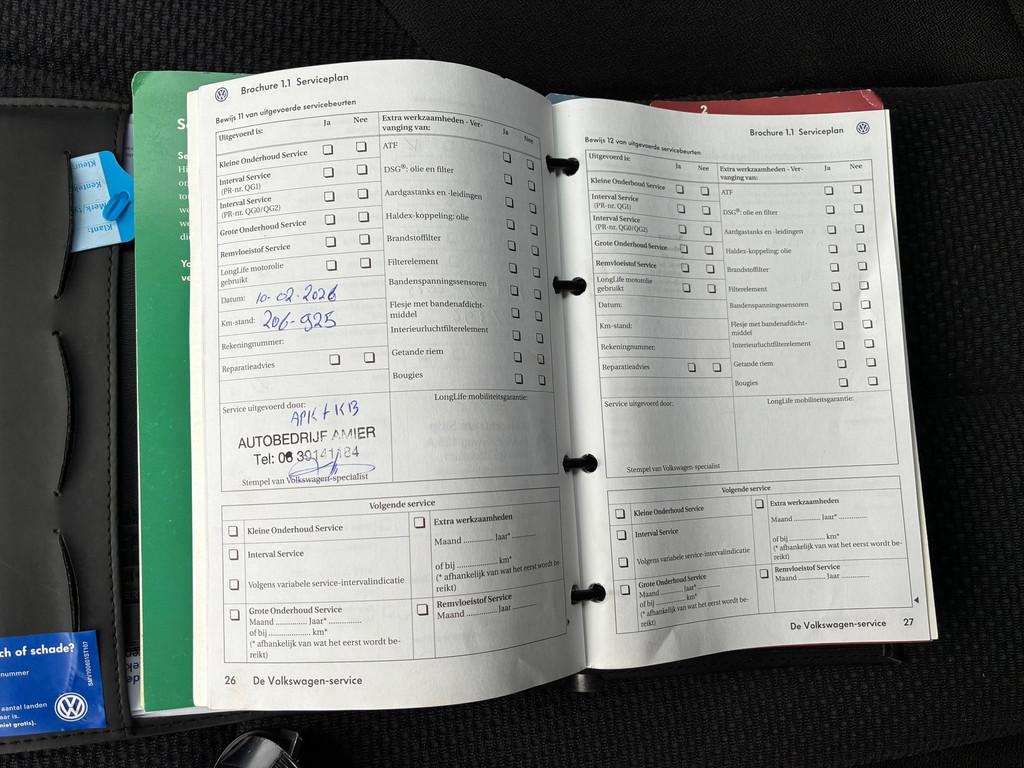 Brochure 1.1 Serviceplan
Bewijs 11 van uitgevoerde servicebeurten
Uitgevoerd is: Ja Nee
Kleine Onderhoud Service
Interval Service
(PR-nr. QG1)
Interval Service
(PR-nr. QG0/QG2)
Grote Onderhoud Service
Remvloeistof Service
LongLife motorolie
gebruikt
Datum: 10-02-2026
Km-stand: 206-925
Rekeningnummer:
Reparatieadvies
Extra werkzaamheden - Ver-
vanging van: Ja Nee
ATF
DSG®: olie en filter
Aardgastanks en -leidingen
Haldex-koppeling: olie
Brandstoffilter
Filterelement
Bandenspanningssensoren
Flesje met bandenafdicht-
middel
Interieurluchtfilterelement
Getande riem
Bougies
Service uitgevoerd door:
APK + KB
AUTOBEDRIJF AMIER
Tel: 06 39141184
Stempel van Volkswagen-specialist
LongLife mobiliteitsgarantie:
Volgende service
Kleine Onderhoud Service
Interval Service
Volgens variabele service-intervalindicatie
Grote Onderhoud Service
Maand ............ Jaar* ..............
of bij .................. km*
(* afhankelijk van wat het eerst wordt be-
reikt)
Extra werkzaamheden
Maand ........... Jaar* ..........
of bij .................. km*
(* afhankelijk van wat het eerst wordt be-
reikt)
Remvloeistof Service
Maand ........... Jaar ..............
26 De Volkswagen-service
Brochure 1.1 Serviceplan
Bewijs 12 van uitgevoerde servicebeurten
Uitgevoerd is: Ja Nee
Kleine Onderhoud Service
Interval Service
(PR-nr. QG1)
Interval Service
(PR-nr. QG0/QG2)
Grote Onderhoud Service
Remvloeistof Service
LongLife motorolie
gebruikt
Datum:
Km-stand:
Rekeningnummer:
Reparatieadvies
Extra werkzaamheden - Ver-
vanging van: Ja Nee
ATF
DSG®: olie en filter
Aardgastanks en -leidingen
Haldex-koppeling: olie
Brandstoffilter
Filterelement
Bandenspanningssensoren
Flesje met bandenafdicht-
middel
Interieurluchtfilterelement
Getande riem
Bougies
Service uitgevoerd door:
Stempel van Volkswagen-specialist
LongLife mobiliteitsgarantie:
Volgende service
Kleine Onderhoud Service
Interval Service
Volgens variabele service-intervalindicatie
Grote Onderhoud Service
Maand ........... Jaar* ............
of bij .................. km*
(* afhankelijk van wat het eerst wordt be-
reikt)
Extra werkzaamheden
Maand ........... Jaar* ..............
of bij .................. km*
(* afhankelijk van wat het eerst wordt be-
reikt)
Remvloeistof Service
Maand ........... Jaar ..............
De Volkswagen-service 27
2
Klant:
Merk/Ty
Kentek
Kleur:
ch of schade?
nummer
aantal landen
aar is.
niet gratis).